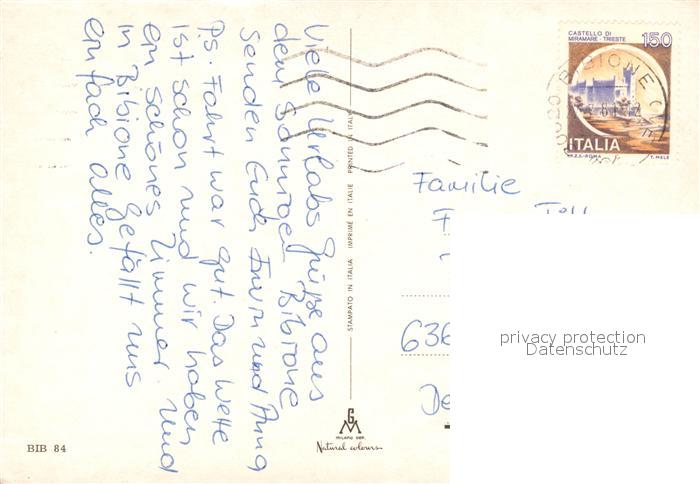 Viele Urlabs Grüße aus
dem sonnigen Bibione
senden Euch Erwin und Anna
P.S. Fahrt war gut. Das Wette
ist schon und wir haben
ein schönes Zimmer. und
in Bibione gefällt uns
einfach alles.
STAMPATO IN ITALIA IMPRIMÉ EN ITALIE PRINTED IN ITALY
CASTELLO DI
MIRAMARE - TRIESTE
150
BIBIONE
ITALIA
I.P.Z.S.-ROMA T. MELE
Familie
636
De
privacy protection
Datenschutz
GM
MILANO DEP.
Natural colours
BIB 84